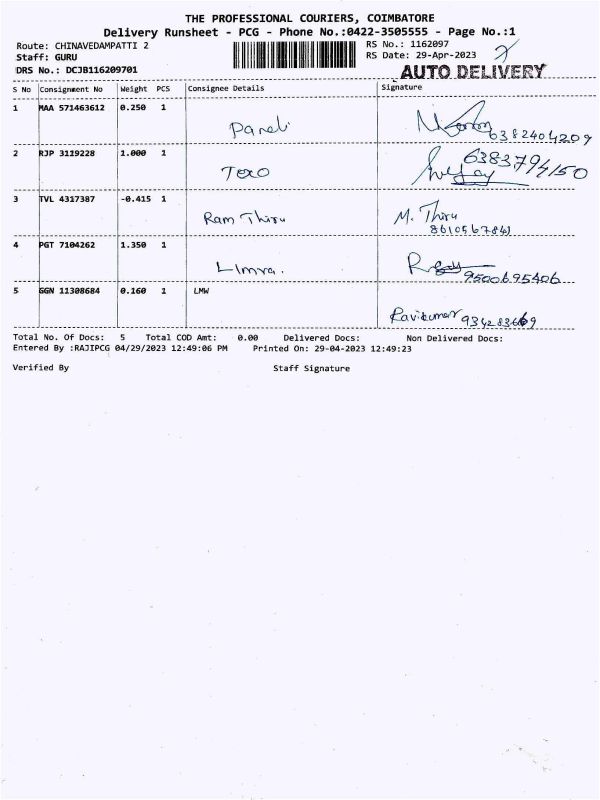 THE PROFESSIONAL COURIERS, COIMBATORE
Delivery Runsheet - PCG - Phone No.:0422-3505555 - Page No.:1
Route: CHINAVEDAMPATTI 2 RS No.: 1162097
Staff: GURU RS Date: 29-Apr-2023
DRS No.: DCJB116209701 AUTO DELIVERY
S No Consignment No Weight PCS Consignee Details Signature
1 MAA 571463612 0.250 1
6382404209
2 RJP 3119228 1.000 1
6383794150
3 TVL 4317387 -0.415 1
Ram Thiru M. Thiru
4 PGT 7104262 1.350 1
Limra.
9500695406
5 GGN 11308684 0.160 1 LMW
Ravikumar
Total No. Of Docs: 5 Total COD Amt: 0.00 Delivered Docs: Non Delivered Docs:
Entered By :RAJIPCG 04/29/2023 12:49:06 PM Printed On: 29-04-2023 12:49:23
Verified By Staff Signature